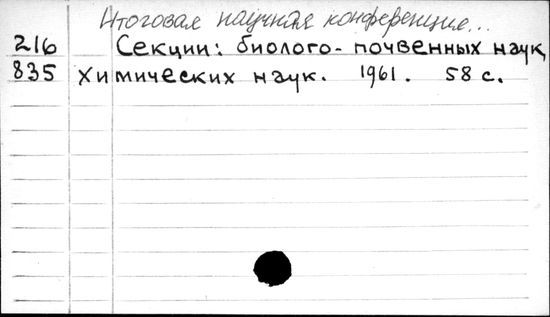 Итоговая научная конференция...
216 Секции: биолого-почвенных наук,
835 химических наук. 1961. 58 с.